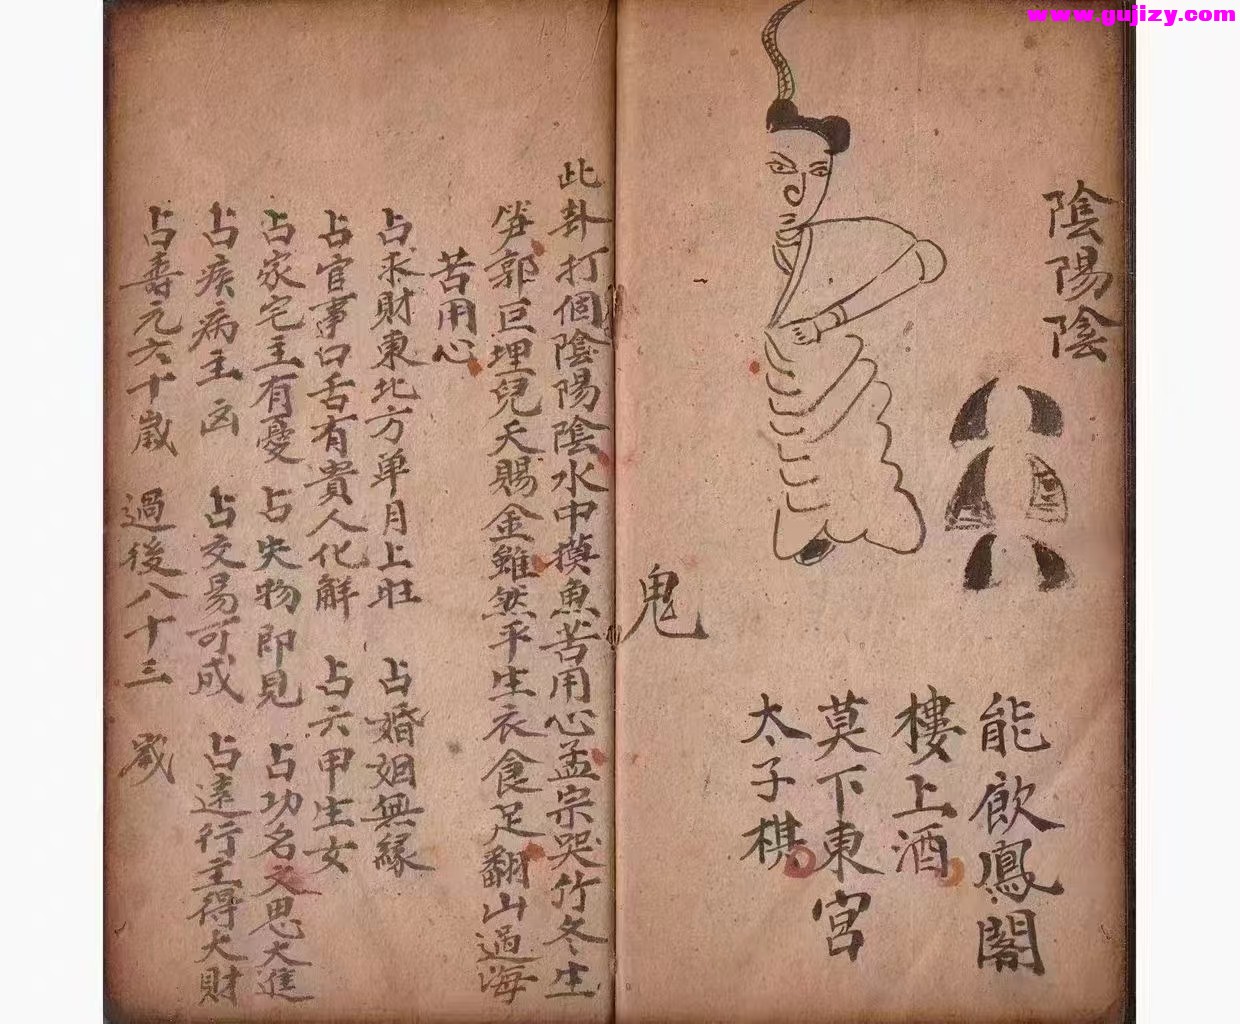 www.gujizy.com
陰陽陰
能飲鳳閣
樓上酒
莫下東宮
太子棋
鬼
此卦打個陰陽陰水中摸魚苦用心孟宗哭竹冬生
笋郭巨埋兒天賜金雖然平生衣食足翻山過海
苦用心
占求財東北方单月上旺 占婚姻無緣
占官事口舌有貴人化解 占六甲生女
占家宅主有憂 占失物即見 占功名文思大進
占疾病主凶 占交易可成 占遠行主得大財
占壽元六十歲 過後八十三歲